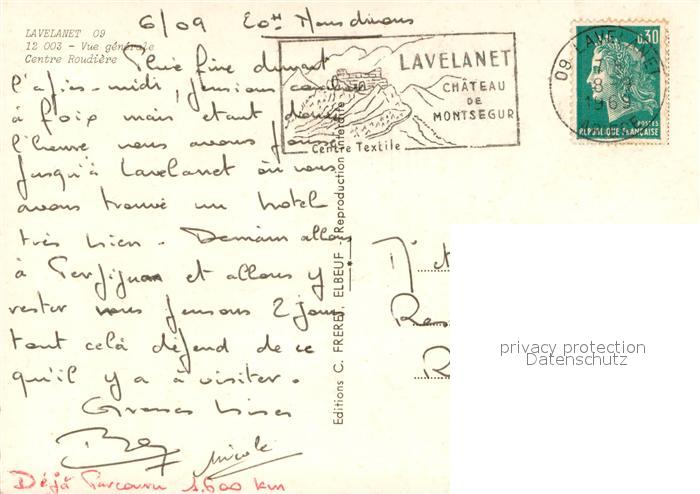 6/09
LAVELANET 09
12 003 - Vue générale
Centre Roudière
Pluie fine durant
l'après-midi, pensions
à Foix mais etant donné
l'heure nous avons
jusqu'à Lavelanet où nous
avons trouvé un hotel
très bien. Demain allons
à Perpignan et allons y
rester nous pensons 2 jours
tout celà dépend de ce
qu'il y a à visiter.
Grosses bises
Nicole
Déjà Parcouru 1.600 km
Editions C. FRERET, ELBEUF - Reproduction interdite
LAVELANET
CHÂTEAU
DE
MONTSEGUR
Centre Textile
09 LAVELANET
1969
ARIEGE
0,30
POSTES
REPUBLIQUE FRANÇAISE
privacy protection
Datenschutz